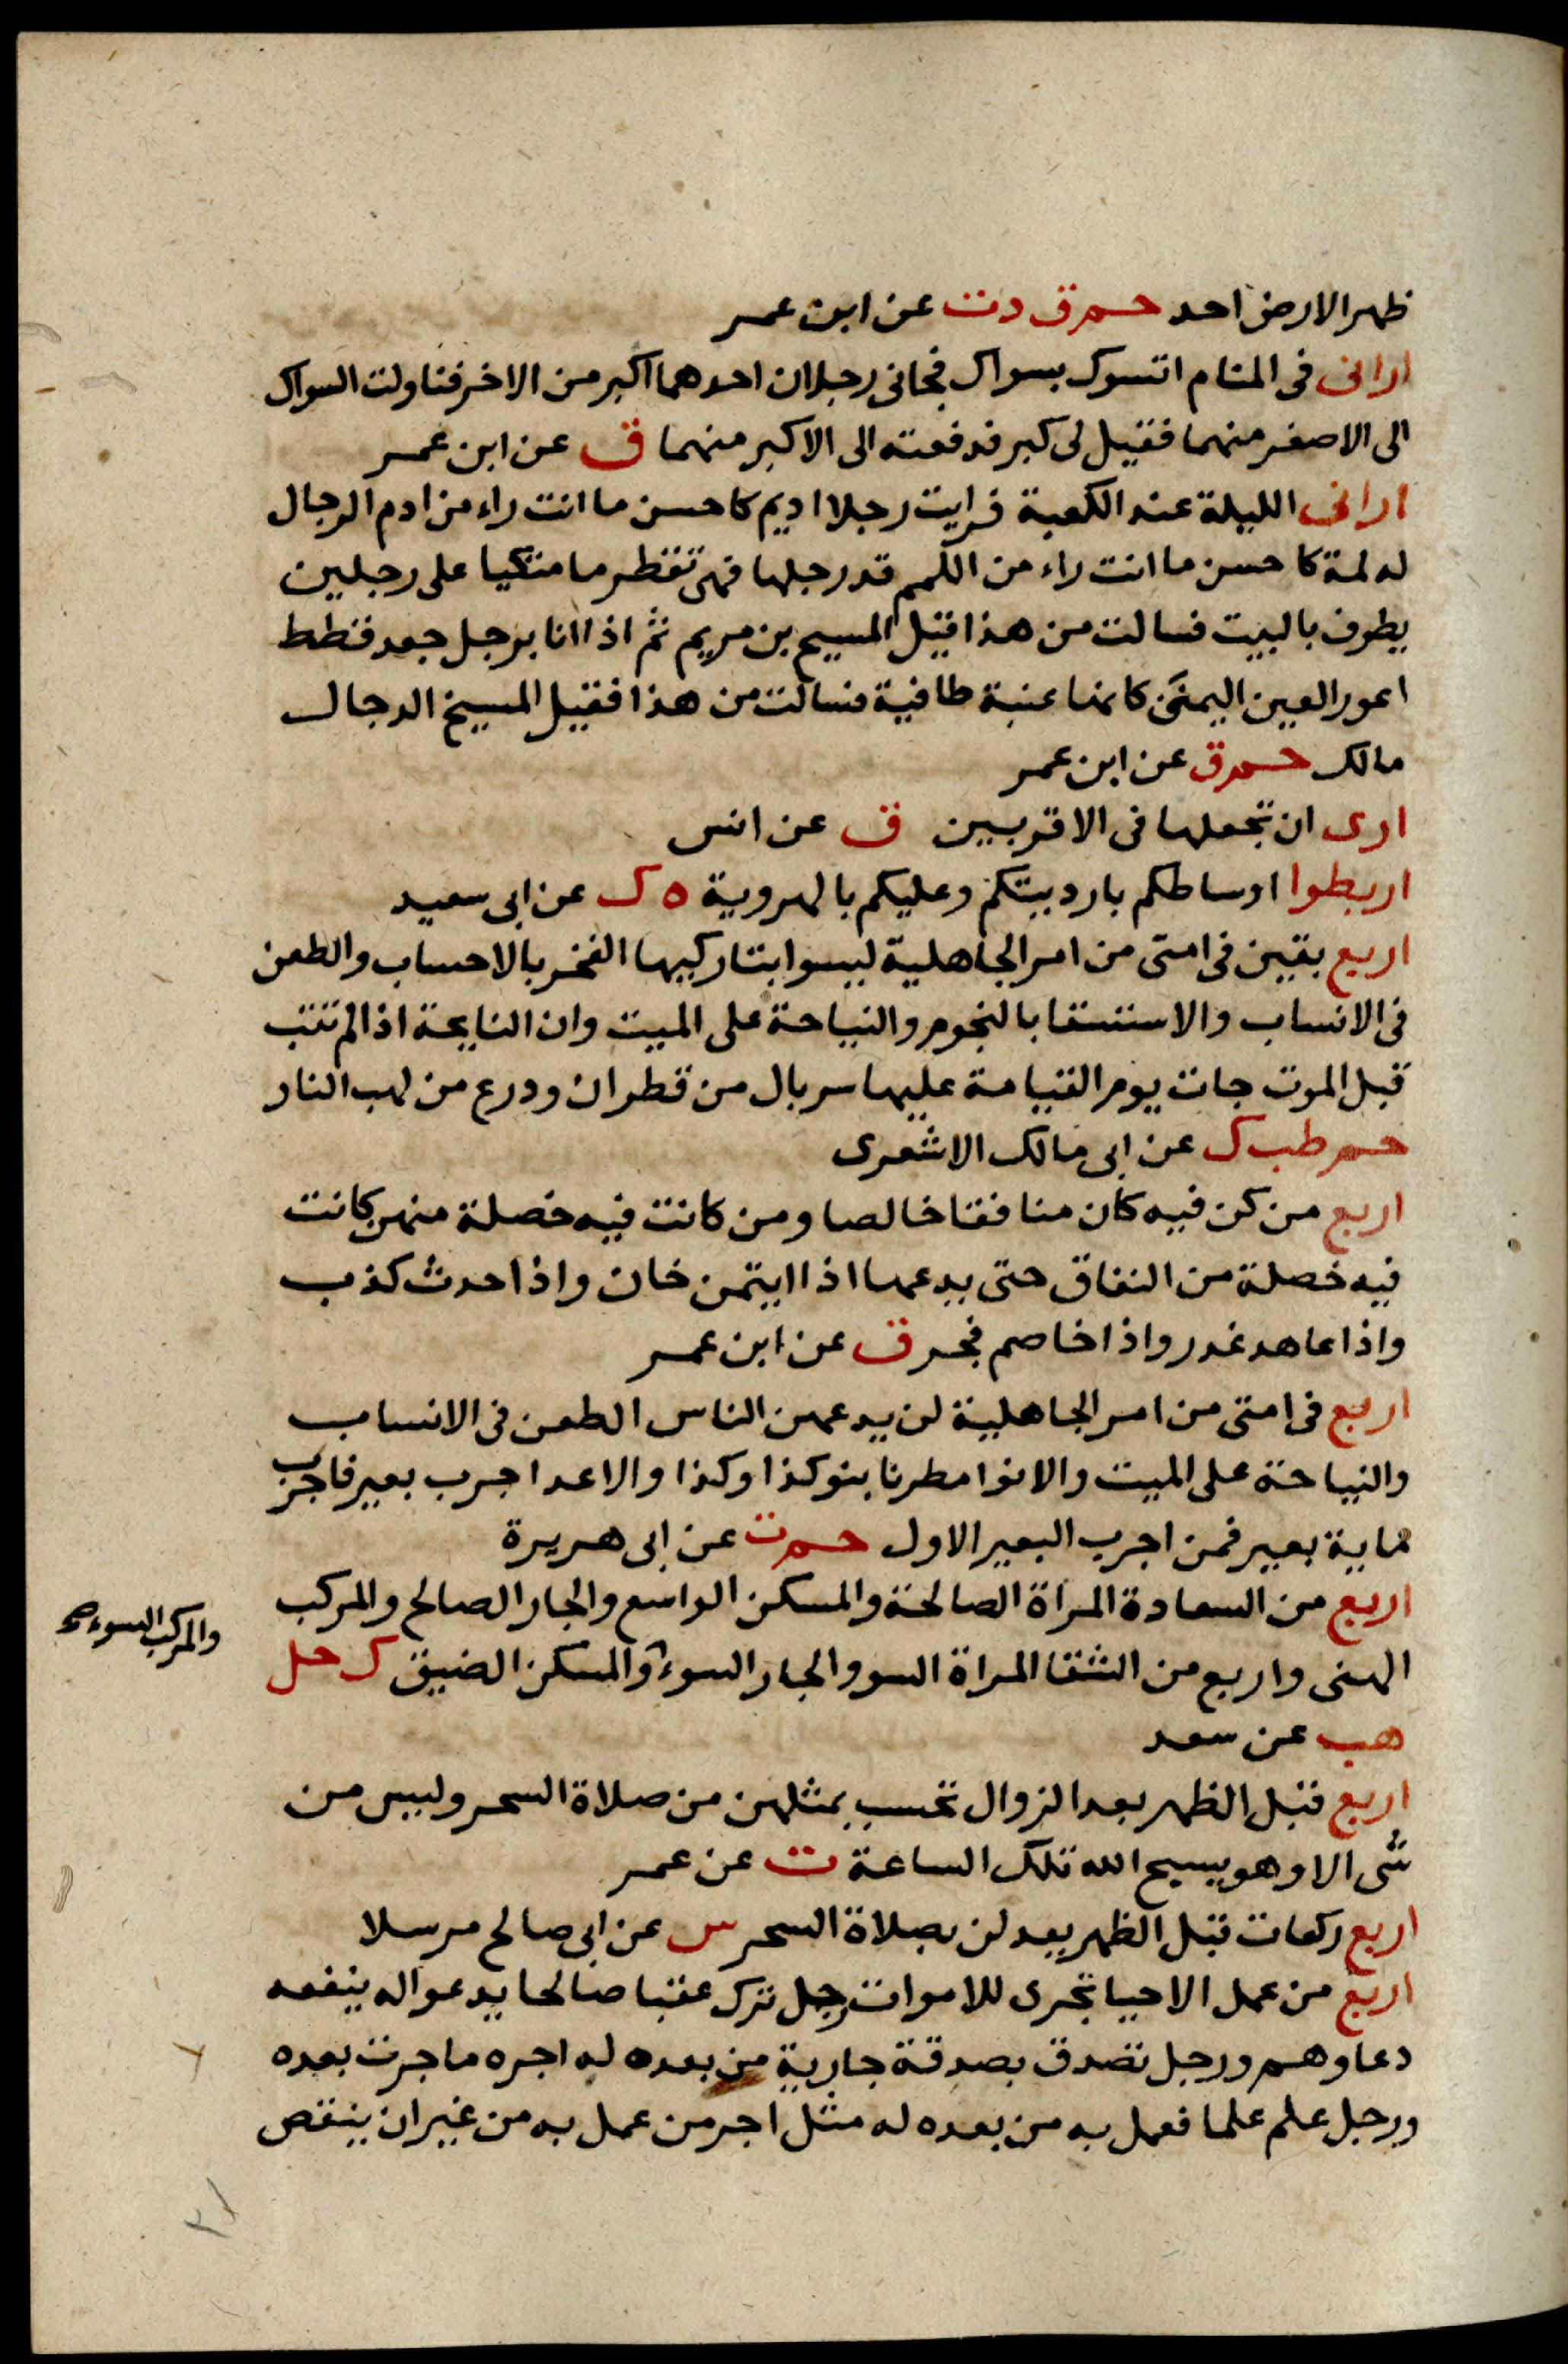 ظهر الارض احد حم ق د ت عن ابن عمر
ارانى فى المنام اتسوك بسواك فجانى رجلان احدهما اكبر من الاخر فناولت السواك
الى الاصغر منهما فقيل لى كبر فدفعته الى الاكبر منهما ق عن ابن عمر
ارانى الليلة عند الكعبة فرايت رجلا اديم كاحسن ما انت راء من ادم الرجال
له لمة كاحسن ما انت راء من اللمم قد رجلها فهى تقطر ما متكيا على رجلين
يطوف بالبيت فسالت من هذا قيل المسيح بن مريم ثم اذا انا برجل جعد قطط
اعور العين اليمنى كانها عنبة طافية فسالت من هذا فقيل المسيخ الدجال
مالك حم ق عن ابن عمر
ارى ان تجعلها فى الاقربين ق عن انس
اربطوا اوساطكم بارديتكم وعليكم بالهروية ه ك عن ابى سعيد
اربع بقين فى امتى من امر الجاهلية ليسوا بتاركيها الفخر بالاحساب والطعن
فى الانساب والاستسقا بالنجوم والنياحة على الميت وان النايحة اذا لم تتب
قبل الموت جات يوم القيامة عليها سربال من قطران ودرع من لهب النار
حم طب ك عن ابى مالك الاشعرى
اربع من كن فيه كان منافقا خالصا ومن كانت فيه خصلة منهن كانت
فيه خصلة من النفاق حتى يدعها اذا ايتمن خان واذا حدث كذب
واذا عاهد غدر واذا خاصم فجر ق عن ابن عمر
اربع فى امتى من امر الجاهلية لن يدعهن الناس الطعن فى الانساب
والنياحة على الميت والانوا مطرنا بنو كذا وكذا والاعدا جرب بعير فاجرب
ماية بعير فمن اجرب البعير الاول حم ت عن ابى هريرة
اربع من السعادة المراة الصالحة والمسكن الواسع والجار الصالح والمركب
الهنى واربع من الشقا المراة السو والجار السوء والمسكن الضيق ك حل
والمركب السوء صح
هب عن سعد
اربع قبل الظهر بعد الزوال تحسب بمثلهن من صلاة السحر وليس من
شى الا وهو يسبح الله تلك الساعة ت عن عمر
اربع ركعات قبل الظهر يعدلن بصلاة السحر س عن ابى صالح مرسلا
اربع من عمل الاحيا تجرى للاموات رجل ترك عقبا صالحا يدعوا له ينفعه
دعاوهم ورجل تصدق بصدقة جارية من بعده له اجره ما جرت بعده
ورجل علم علما فعمل به من بعده له مثل اجر من عمل به من غير ان ينقص